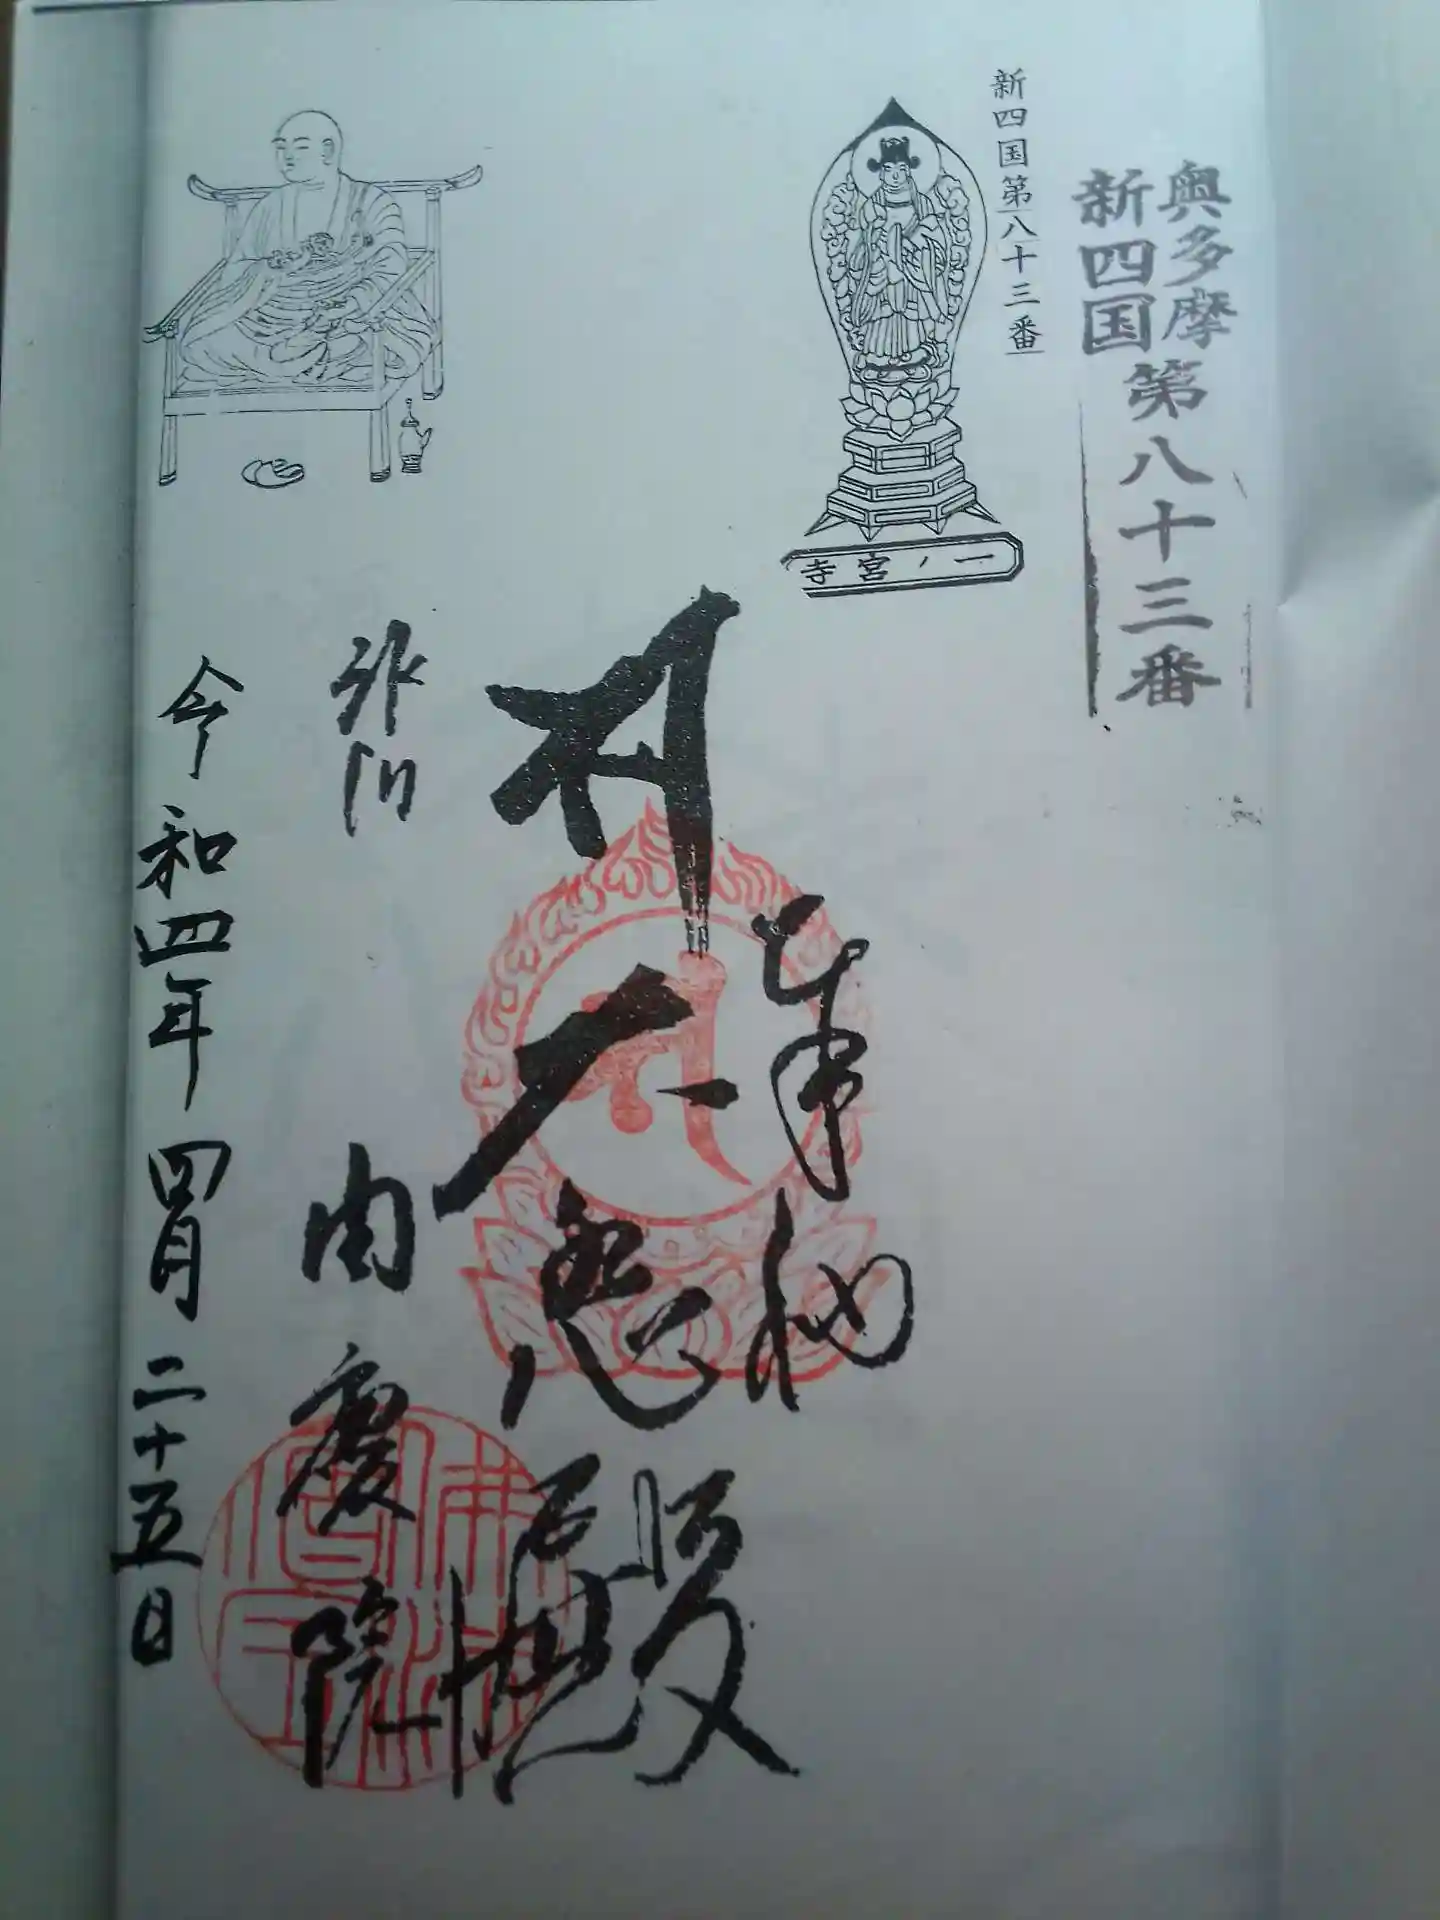 奥多摩
新四国
第八十三番
新四国第八十三番
一ノ宮寺
奉納
大悲殿
周慶院
令和四年四月二十五日